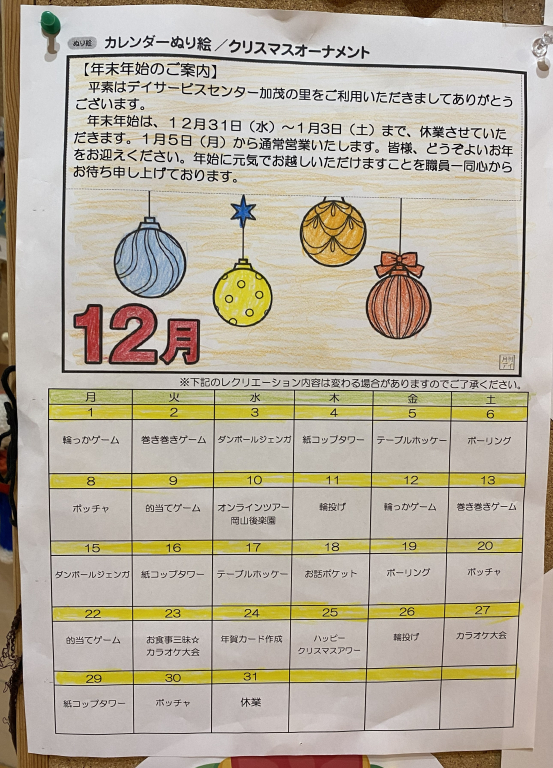 ぬり絵 カレンダーぬり絵／クリスマスオーナメント
【年末年始のご案内】
平素はデイサービスセンター加茂の里をご利用いただきましてありがとう
ございます。
年末年始は、１２月31日（水）～１月3日（土）まで、休業させていた
だきます。１月５日（月）から通常営業いたします。皆様、どうぞよいお年
をお迎えください。年始に元気でお越しいただけますことを職員一同心から
お待ち申し上げております。
12月
※下記のレクリエーション内容は変わる場合がありますのでご了承ください。
月 火 水 木 金 土
1 2 3 4 5 6
輪っかゲーム 巻き巻きゲーム ダンボールジェンガ 紙コップタワー テーブルホッケー ボーリング
8 9 10 11 12 13
ボッチャ 的当てゲーム オンラインツアー 輪投げ 輪っかゲーム 巻き巻きゲーム
岡山後楽園
15 16 17 18 19 20
ダンボールジェンガ 紙コップタワー テーブルホッケー お話ポケット ボーリング ボッチャ
22 23 24 25 26 27
的当てゲーム お食事三昧☆ 年賀カード作成 ハッピー 輪投げ カラオケ大会
カラオケ大会 クリスマスアワー
29 30 31
紙コップタワー ボッチャ 休業